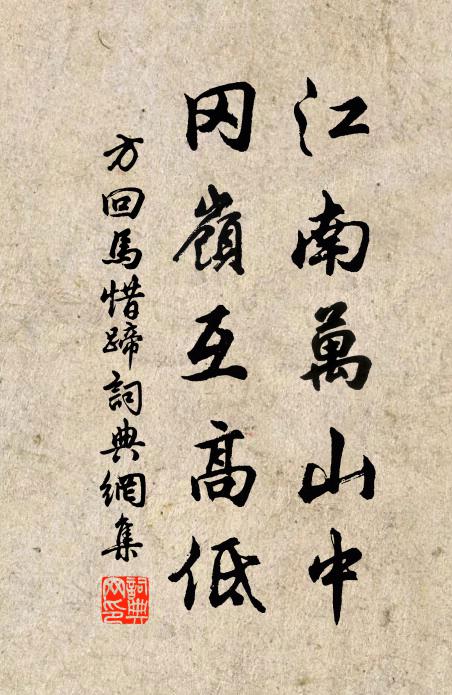 江南萬山中
冈嶺互高低
方回馬惜蹄詞典網集
詞典网印